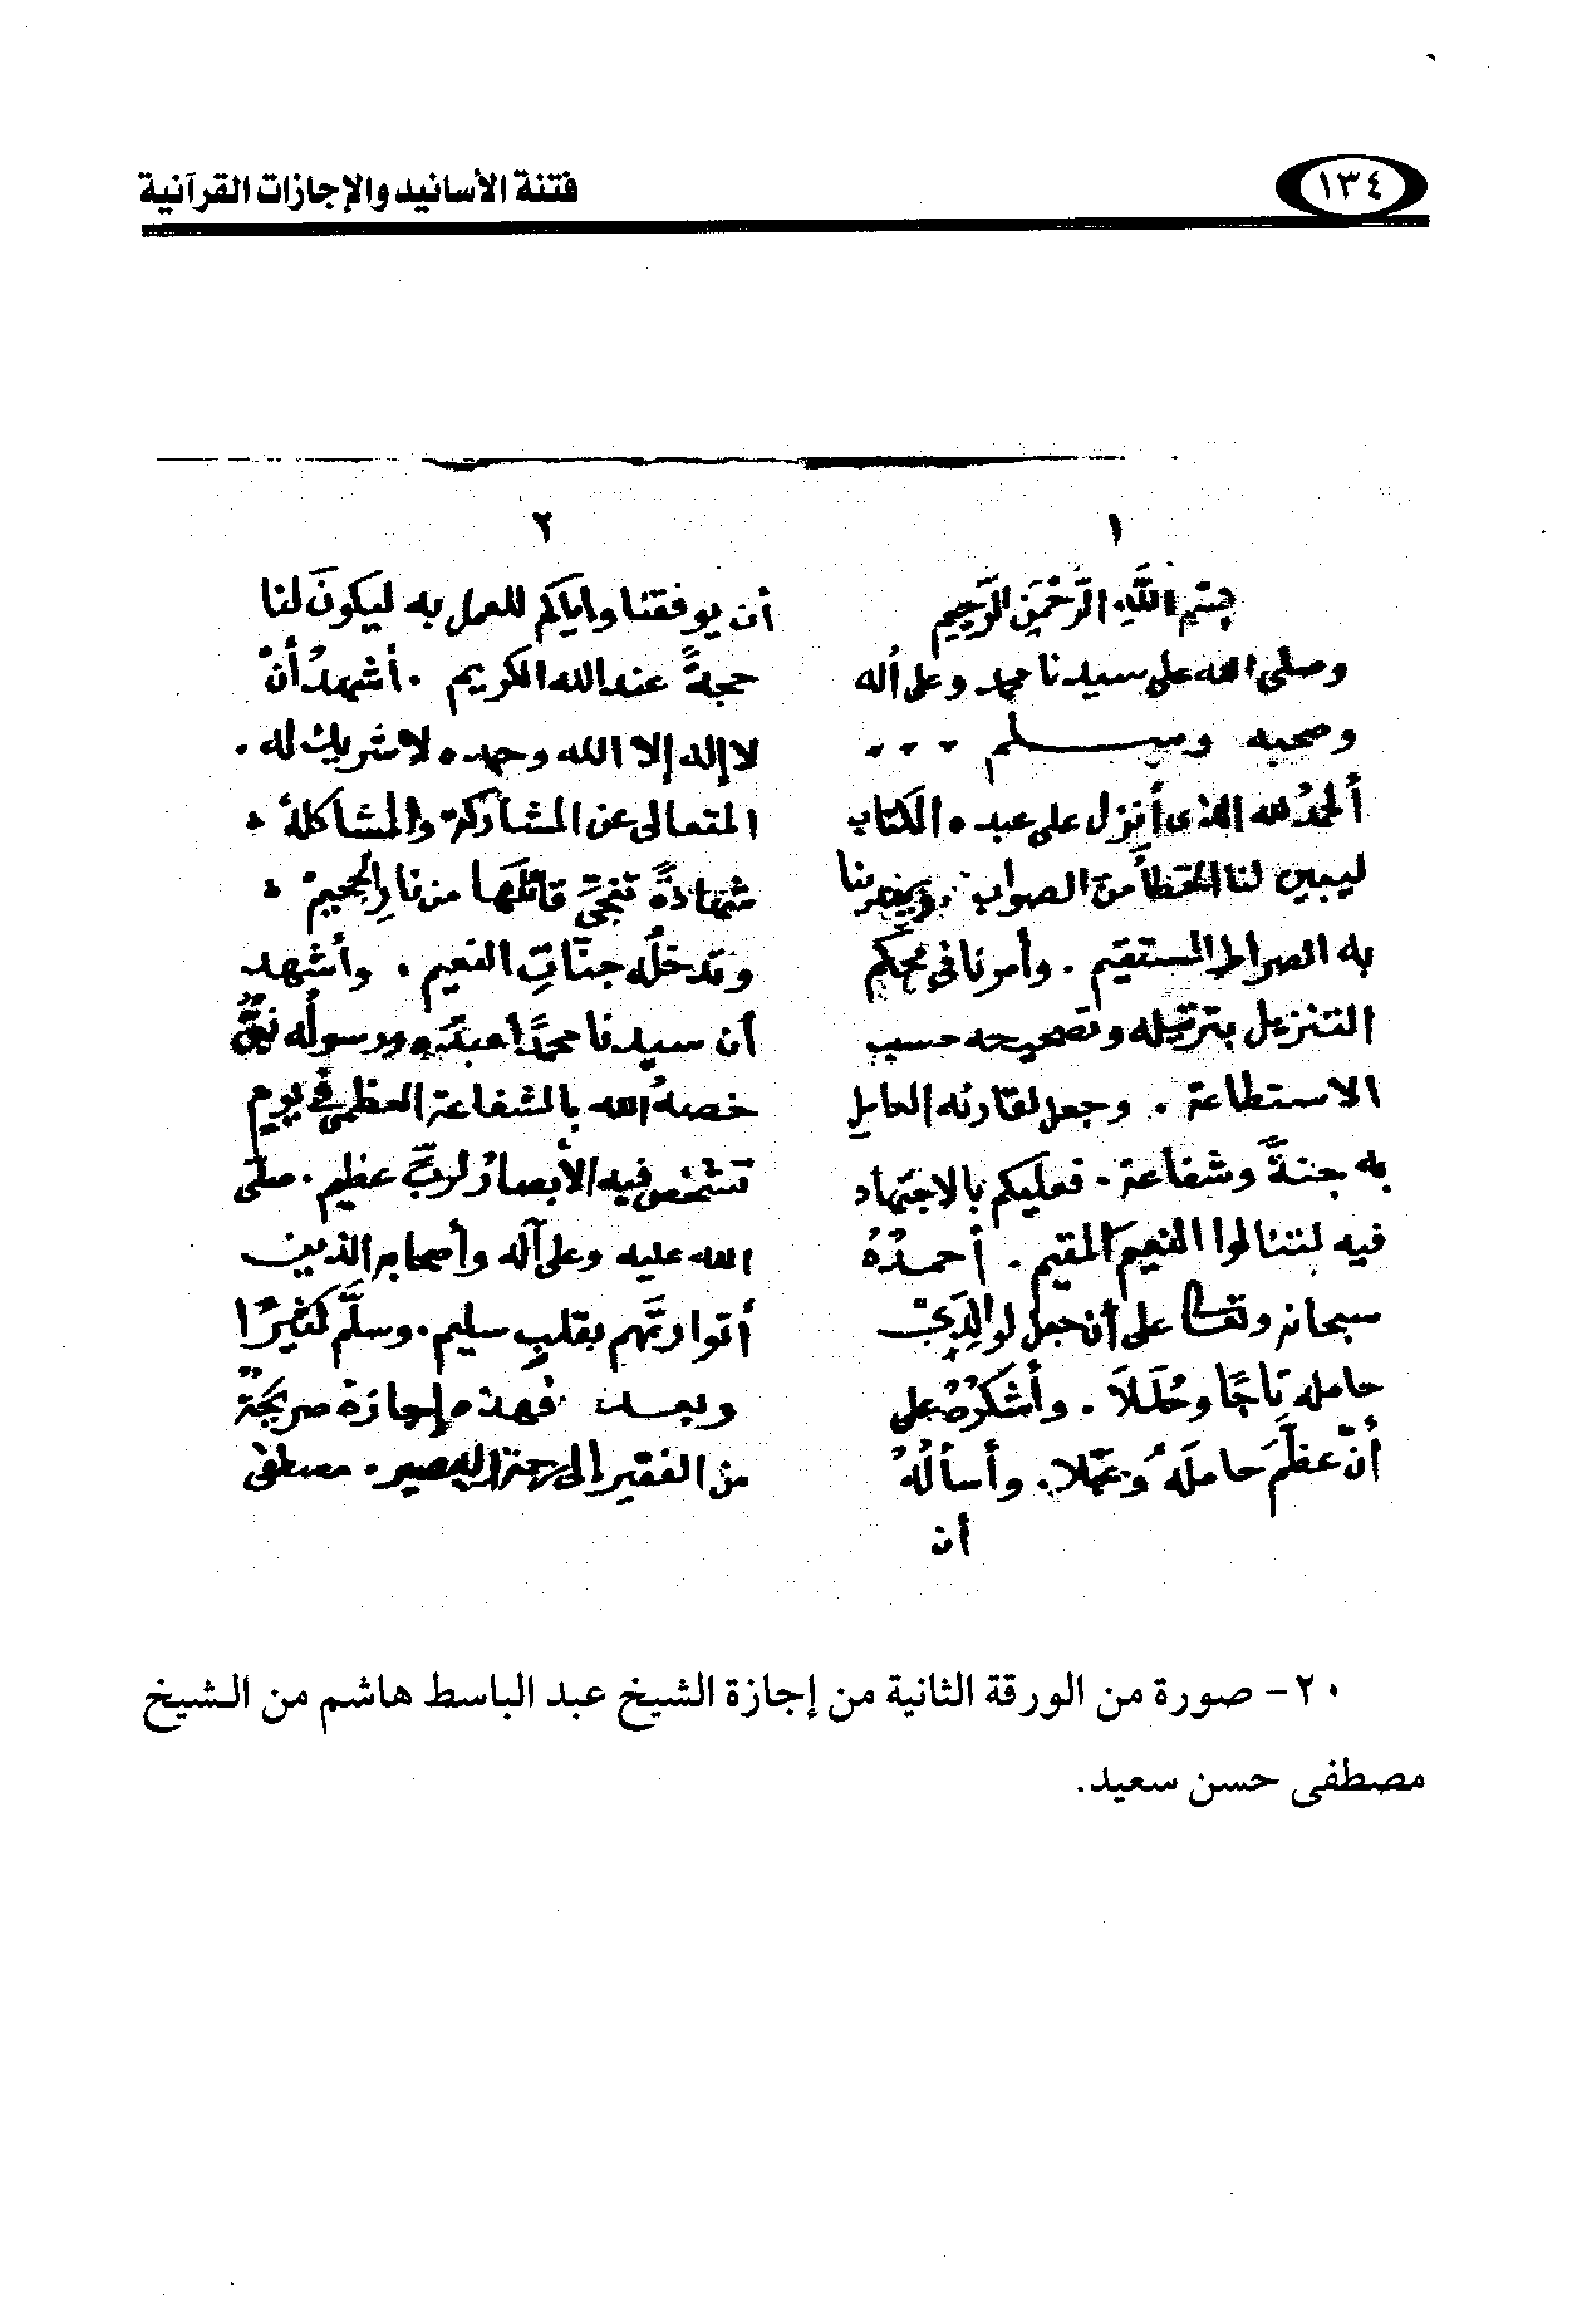 ١٣٤
فتنة الأسانيد والإجازات القرآنية
١
بِسْمِ اللَّهِ الرَّحْمَنِ الرَّحِيمِ
وصلى الله على سيدنا محمد وعلى أله
وصحبه وسلم
ألحمدُ لله الذى أنزل على عبده الكتاب
ليبين لنا الخطأ من الصواب
به الصراط المستقيم . وأمرنا فى محكم
التنزيل بترتيله وتصحيحه حسب
الاستطاعة . وجعل لقارئه العامل
به جنةً وشفاعة . فعليكم بالاجتهاد
فيه لتنالوا النعيم المقيم . أحمدُهُ
سبحانه وتعالى على أن جعل لوالِدَىْ
حامله تاجًا وحُلَلاً . وأشكرُهُ على
أنْ عظَّمَ حاملَهُ وعملا . وأسألُهُ
أن
٢
أن يوفقنا واياكم للعمل به ليكونَ لنا
حجةً عند الله الكريم . أشهدُ أنْ
لا إله إلا الله وحده لا شريك له .
المتعالى عن المشاركة والمشاكلة
شهادةً تنجِّى قائلَهَا من نارِ الجحيم
وتدخلُه جنَّاتِ النعيم . وأشهد
أن سيدنا محمدًا عبدُه ورسولُه نبىٌّ
خصهُ الله بالشفاعة العظمى فى يوم
تشخص فيه الأبصارُ لربٍّ عظيم . صلَّى
الله عليه وعلى آله وأصحابه الذين
أتوا ربَّهم بقلبٍ سليم . وسلَّم كثيرًا
وبعد فهذه إجازة صريحةٌ
من الفقير إلى رحمة إليه المصير . مصطفى
٢٠- صورة من الورقة الثانية من إجازة الشيخ عبد الباسط هاشم من الشيخ
مصطفى حسن سعيد.